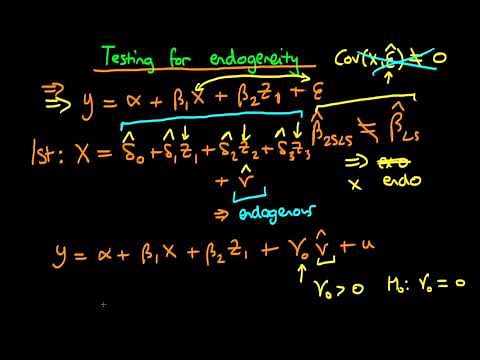 Testing for endogeneity
Cov(x, ε̂) ≠ 0
⇒ ⇒ y = α + β₁x + β₂z₁ + ε
β̂₂SLS ≠ β̂LS
1st: x = δ̂₀ + δ̂₁z₁ + δ̂₂z₂ + δ̂₃z₃
+ v̂
⇒
x endo
⇒ endogenous
y = α + β₁x + β₂z₁ + γ₀v̂ + u
γ₀ > 0 H₀: γ₀ = 0